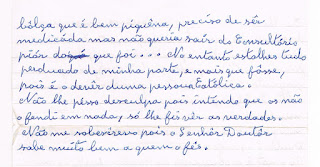 bôlça que é bem piquêna, preciso de sêr
medicáda mas não queria saír do Consultório
piór do que foi... No entanto estalhes tudo
perduado de minha parte, e mais que fôsse,
pois é o devêr duma pessoa Católica.
Não lhe pesso desculpa pois intêndo que os não
ofendi em nada, só lhe fis vêr as verdades.
Não me sobescrevo pois o Senhôr Doutôr
sabe muito bem a quem o fês.